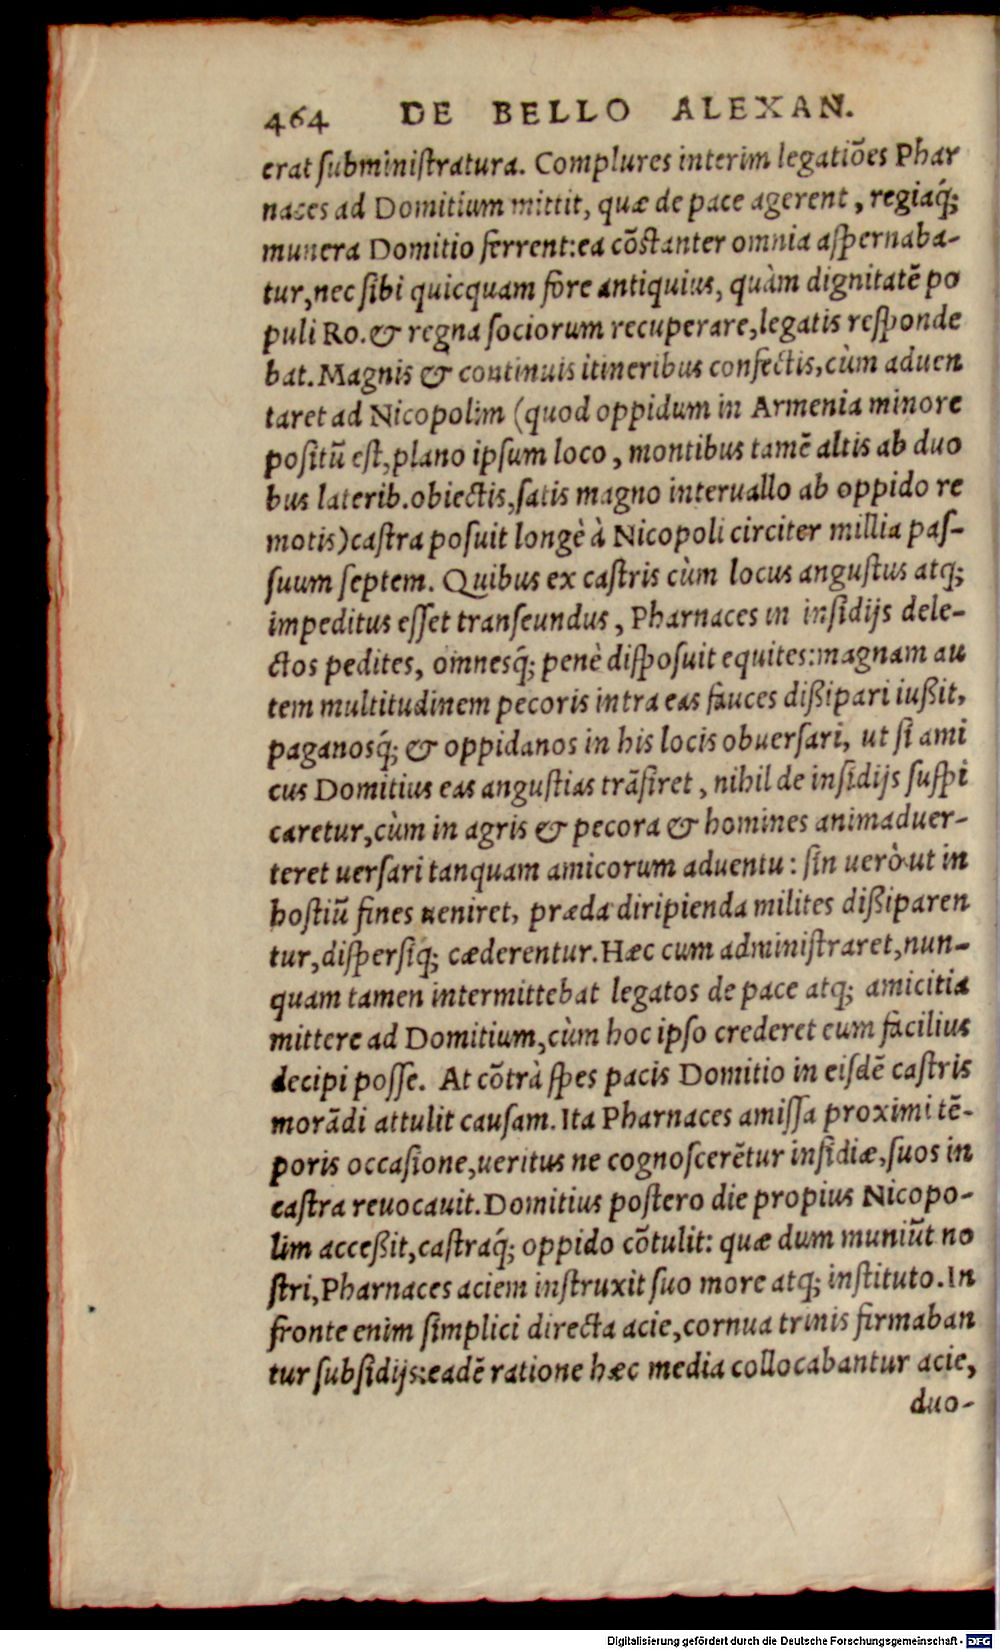 464 DE BELLO ALEXAN.
erat subministratura. Complures interim legatiões Phar
naces ad Domitium mittit, quæ de pace agerent, regiaq́;
munera Domitio ferrent:ea cõstanter omnia aspernaba-
tur,nec sibi quicquam fore antiquius, quàm dignitatẽ po
puli Ro.& regna sociorum recuperare,legatis responde
bat.Magnis & continuis itineribus confectis,cùm aduen
taret ad Nicopolim (quod oppidum in Armenia minore
positũ est,plano ipsum loco, montibus tamẽ altis ab duo
bus laterib.obiectis,satis magno interuallo ab oppido re
motis)castra posuit longè à Nicopoli circiter millia pas-
suum septem. Quibus ex castris cùm locus angustus atq;
impeditus esset transeundus, Pharnaces in insidijs dele-
ctos pedites, omnesq́; penè disposuit equites:magnam au
tem multitudinem pecoris intra eas fauces dißipari iußit,
paganosq́; & oppidanos in his locis obuersari, ut si ami
cus Domitius eas angustias trãsiret, nihil de insidijs suspi
caretur,cùm in agris & pecora & homines animaduer-
teret uersari tanquam amicorum aduentu: sin uerò ut in
hostiũ fines ueniret, præda diripienda milites dißiparen
tur,dispersiq́; cæderentur.Hæc cum administraret,nun-
quam tamen intermittebat legatos de pace atq; amicitia
mittere ad Domitium,cùm hoc ipso crederet eum facilius
decipi posse. At cõtrà spes pacis Domitio in eisdẽ castris
morãdi attulit causam.Ita Pharnaces amissa proximi tẽ-
poris occasione,ueritus ne cognoscerẽtur insidiæ,suos in
castra reuocauit.Domitius postero die propius Nicopo-
lim acceßit,castraq́; oppido cõtulit: quæ dum muniũt no
stri,Pharnaces aciem instruxit suo more atq; instituto.In
fronte enim simplici directa acie,cornua trinis firmaban
tur subsidijs:eadẽ ratione hæc media collocabantur acie,
duo-
Digitalisierung gefördert durch die Deutsche Forschungsgemeinschaft - DFG